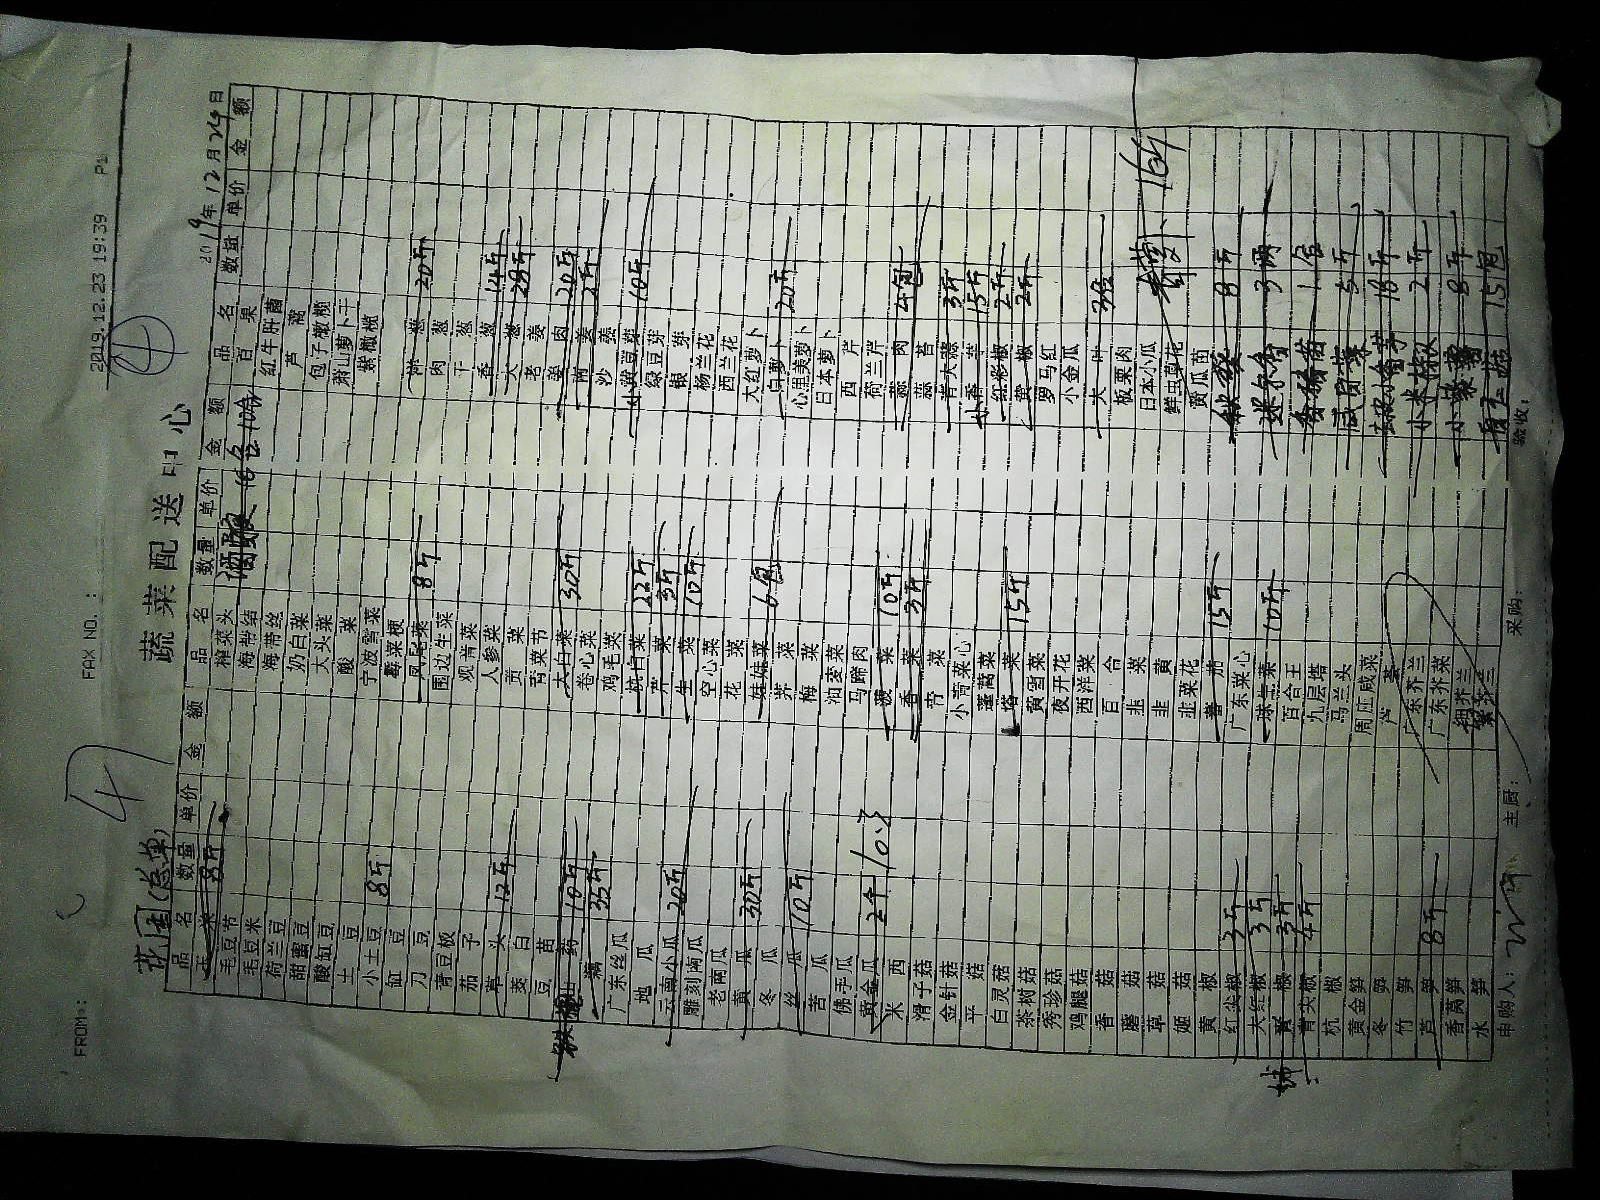 FROM:
FAX NO. :
2019.12.23 19:39 P1
4
蔬菜配送中心
花园(总单)
2019年12月24日
品名 数量 单价 金额 品名 数量 单价 金额 品名 数量 单价 金额
玉米 8斤 榨菜头 百果
毛豆节 海带结 红牛肝菌
毛豆米 海带丝 芦蒿
荷兰豆 奶白菜 包子橄榄
甜蜜豆 大头菜 萧山萝卜干
酸缸豆 酸菜 紫橄榄
土豆 宁波雪菜
小土豆 8斤 霉菜梗
缸豆 凤尾菜 8斤 洋葱 20斤
刀豆 围边生菜 肉葱
青豆板 观音菜 干葱
茄子 人参菜 香葱 14斤
草头 12斤 贡菜 大葱 28斤
茭白 青菜节 老姜
豆苗 大白菜 30斤 姜肉 20斤
铁棍山药 10斤 卷心菜 南姜 2斤
藕 35斤 鸡毛菜 沙姜
广东丝瓜 杭白菜 22斤 小黄豆芽 10斤
地瓜 芹菜 3斤 绿豆芽
云南小瓜 20斤 生菜 10斤 银芽
雕刻南瓜 空心菜 杨兰花
老南瓜 花菜 西兰花
黄瓜 30斤 娃娃菜 6包 大红萝卜
冬瓜 荠菜 白萝卜 20斤
丝瓜 10斤 梅菜 心里美萝卜
苦瓜 油麦菜 日本萝卜
佛手瓜 马蹄肉 西芹
黄金瓜 2个 10.3 菠菜 10斤 荷兰芹
米西 香菜 3斤 蒜肉 4包
滑子菇 芥菜 蒜苔
金针菇 小菊菜心 青大蒜 3斤
平菇 蓬蒿菜 小香韭 15斤
白灵菇 塔菜 15斤 红彩椒 2斤
茶树菇 黄雪菜 黄椒 2斤
秀珍菇 夜开花 罗马红
鸡腿菇 西洋菜 小金瓜
香菇 百合 大叶 3包
蘑菇 韭菜 板栗肉
草菇 韭黄 日本小瓜
姬菇 韭菜花 鲜虫草花
黄椒 番茄 15斤 黄瓜苗
红尖椒 3斤 广东菜心 秋葵 8斤
大红椒 3斤 球生菜 10斤 迷尔香 3两
青椒 3斤 百合王 1盒
青尖椒 4斤 九层塔 5斤
杭椒 马兰头 18斤
黄金笋 周庄咸菜 小米椒 2斤
冬笋 芦荟 8斤
竹笋 广东芥兰 15包
芦笋 8斤 广东芥菜
香莴笋 细芥兰
水笋 紫芥兰
青萝卜 16斤
申购人: 主厨: 采购: 验收: